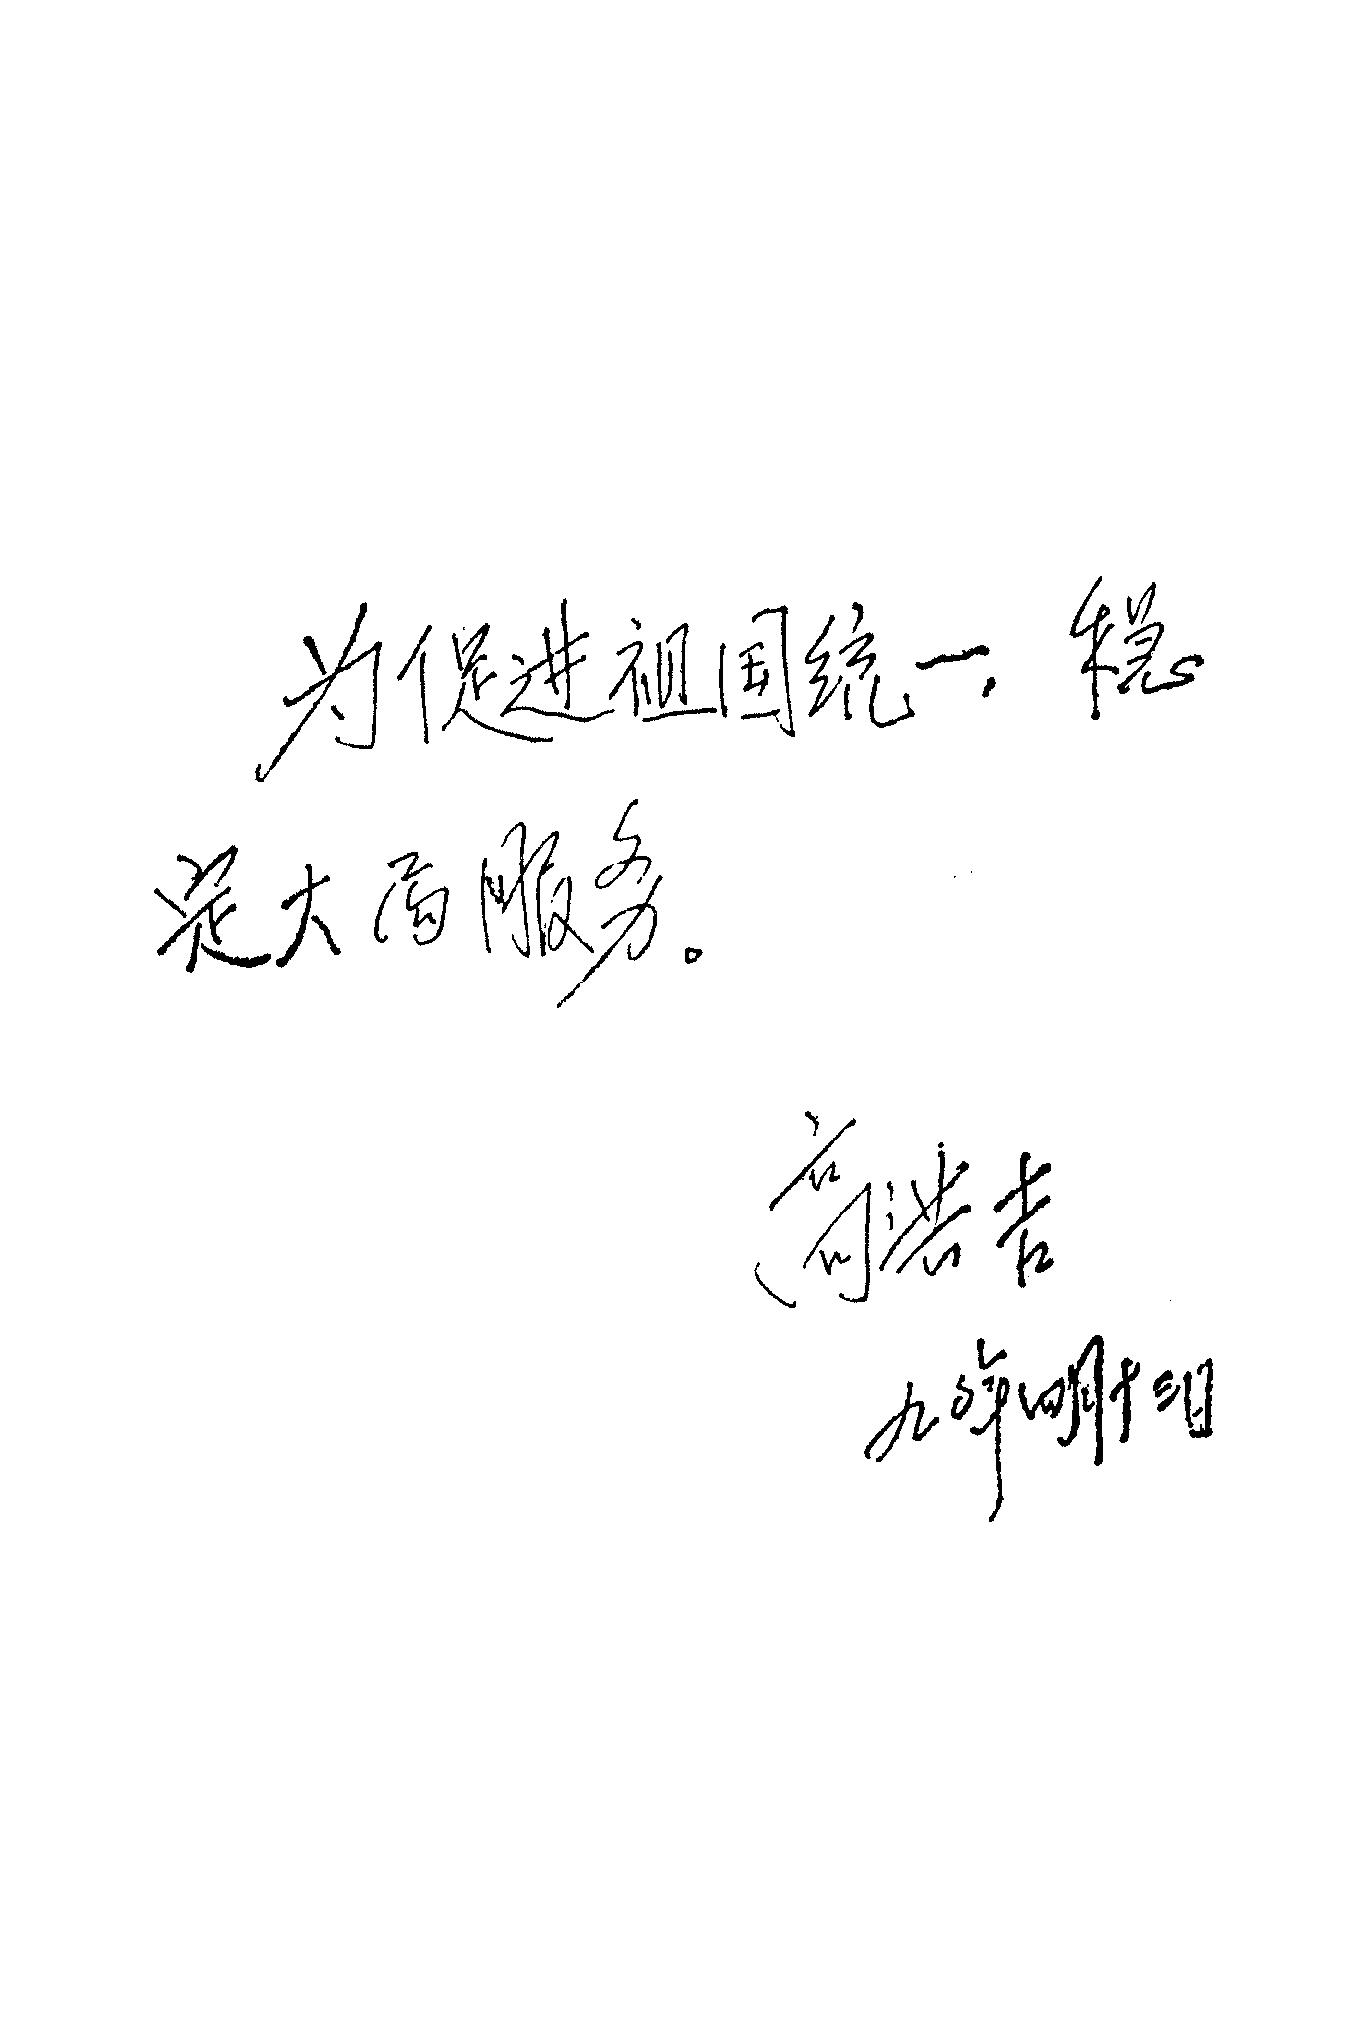 为促进祖国统一，稳
定大局服务。
高洪吉
九〇年四月十三日